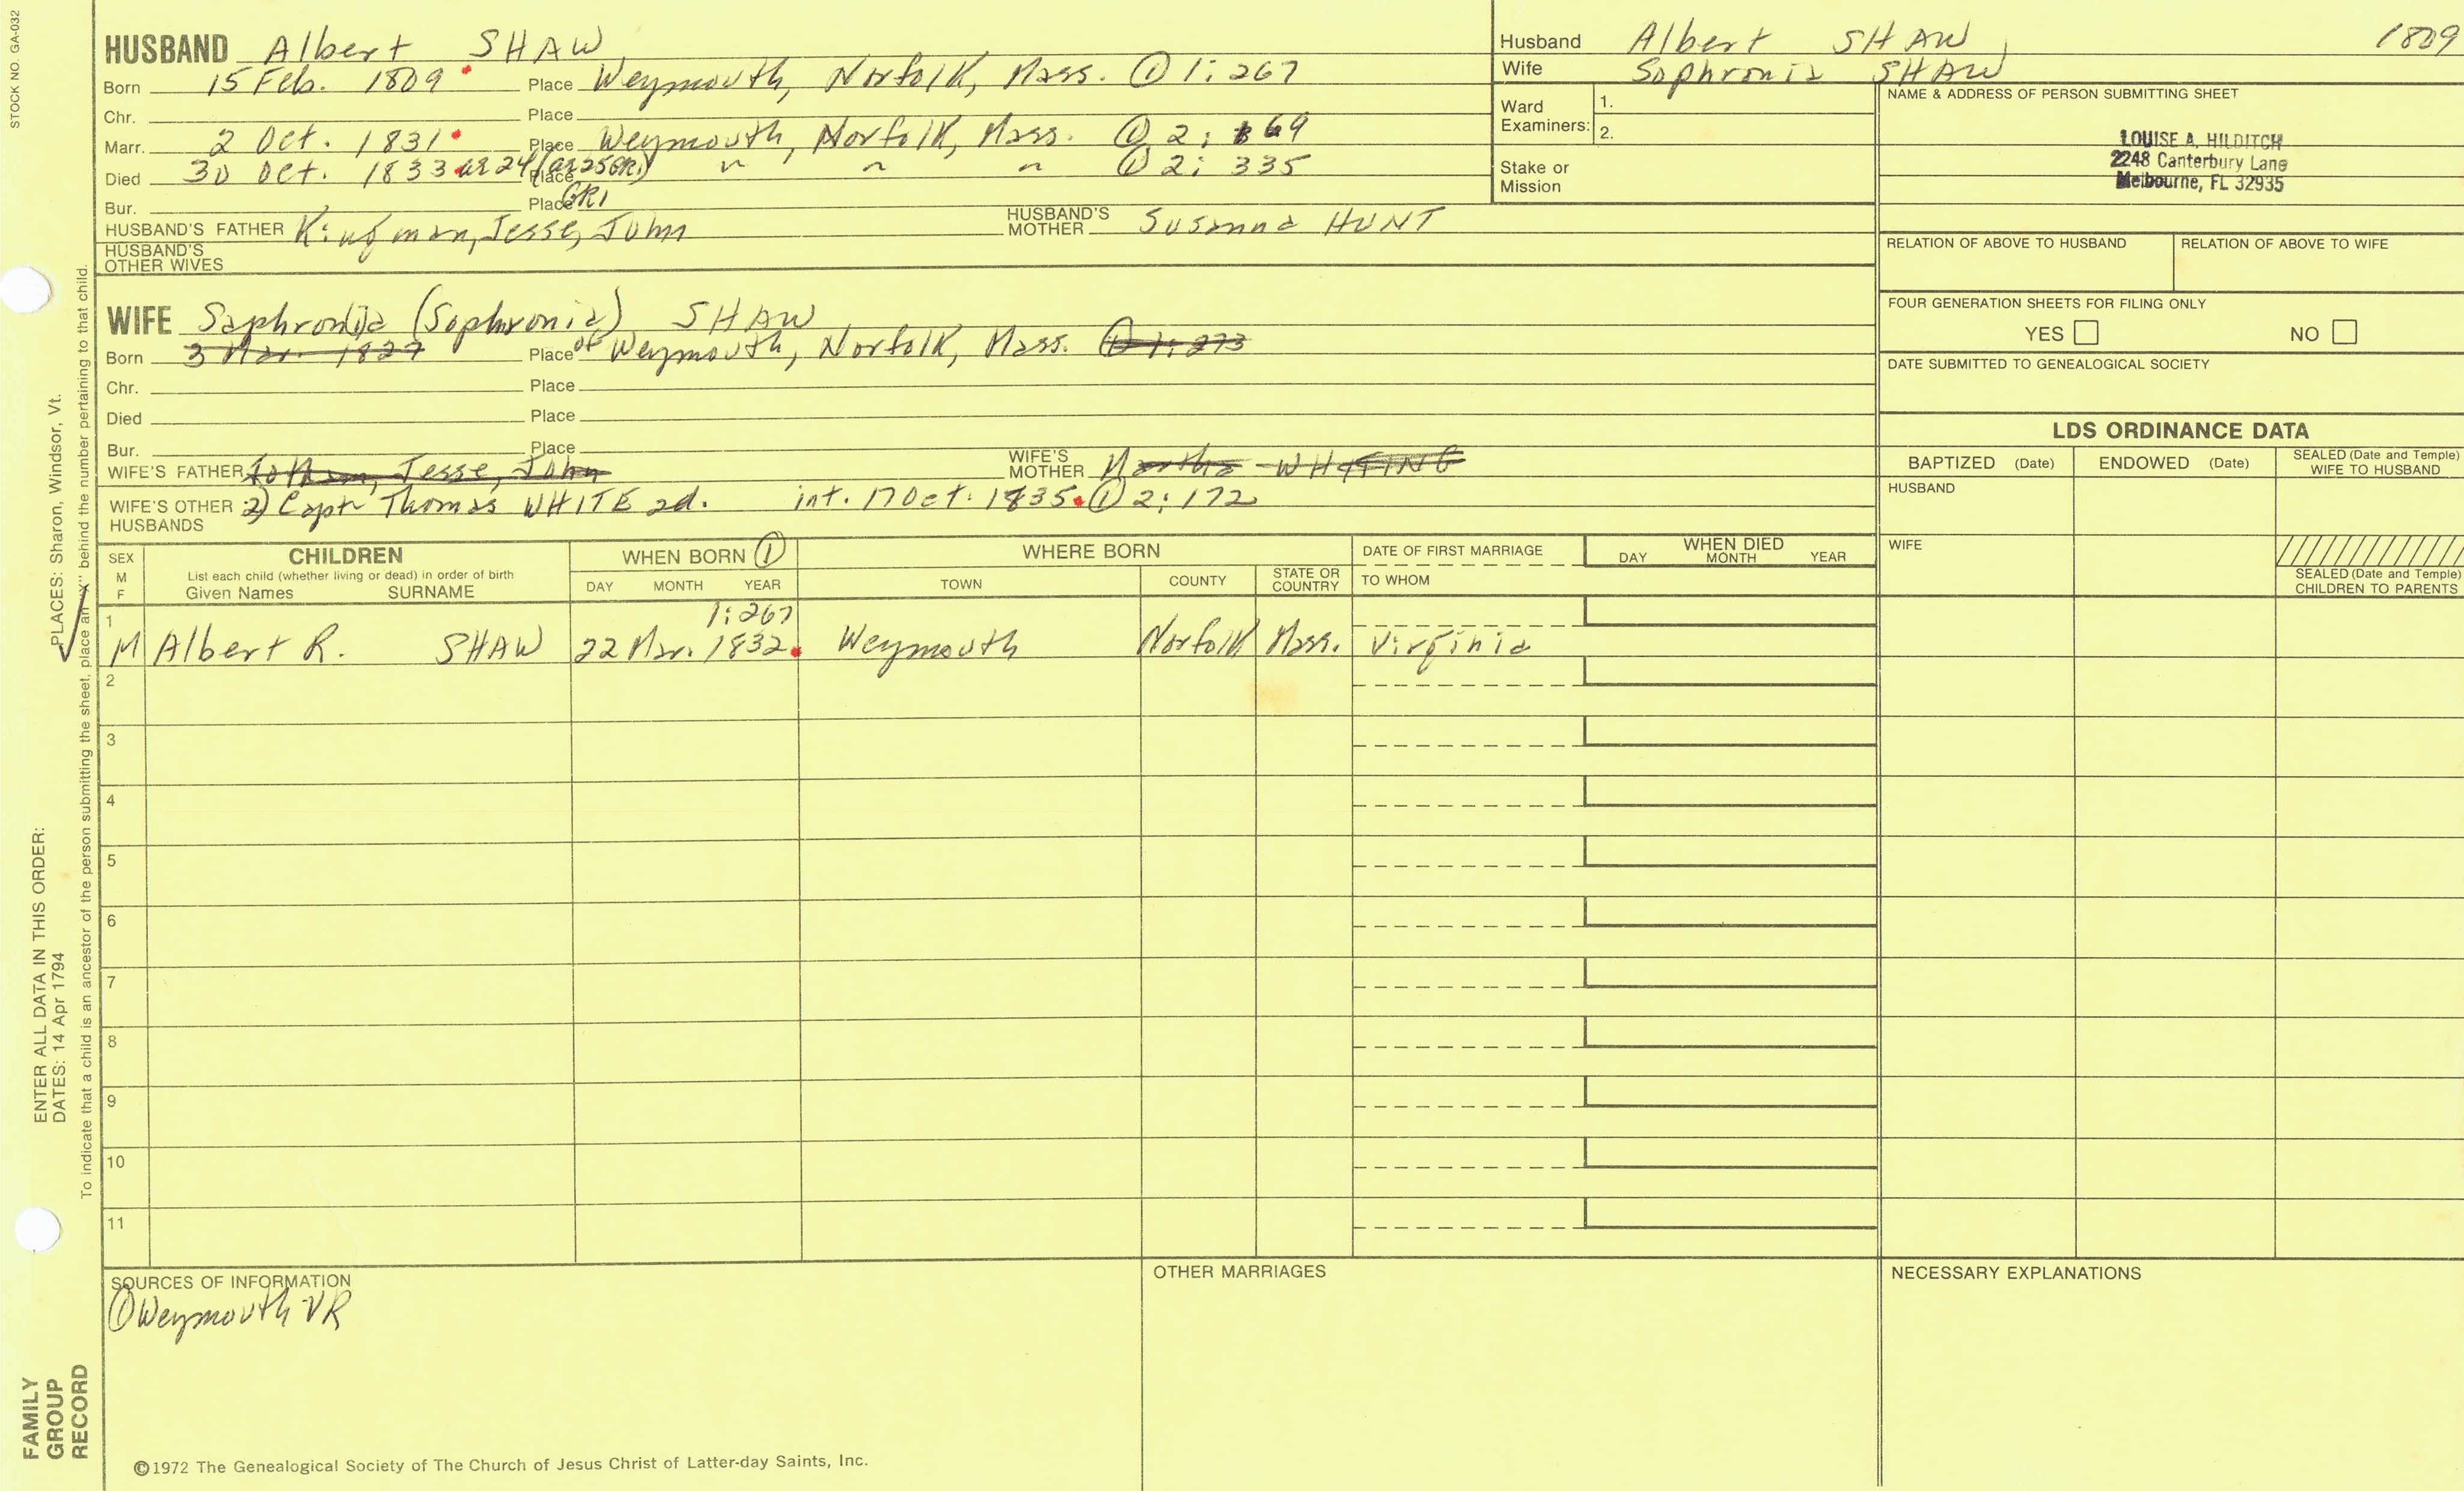 STOCK NO. GA-032
HUSBAND Albert SHAW
Born 15 Feb. 1809 Place Weymouth, Norfolk, Mass. ① 1: 267
Chr. Place
Marr. 2 Oct. 1831 Place Weymouth, Norfolk, Mass. ① 2: 169
Died 30 Oct. 1833 ae 24 (ae 25 GR1) Place " " " ① 2: 335
Bur. Place GR1
HUSBAND'S FATHER Kingman, Jesse, John HUSBAND'S MOTHER Susanna HUNT
HUSBAND'S OTHER WIVES
WIFE (Sophronia) SHAW
Born 3 Mar. 1827 Place of Weymouth, Norfolk, Mass. ① 1: 273
Chr. Place
Died Place
Bur. Place
WIFE'S FATHER Jesse, John WIFE'S MOTHER Martha WHITING
WIFE'S OTHER HUSBANDS 2) Capt. Thomas WHITE 2d. int. 17 Oct. 1835 ① 2: 172
Husband Albert SHAW 1809
Wife Sophronia SHAW
Ward Examiners: 1.
2.
Stake or Mission
NAME & ADDRESS OF PERSON SUBMITTING SHEET
LOUISE A. HILDITCH
2248 Canterbury Lane
Melbourne, FL 32935
RELATION OF ABOVE TO HUSBAND RELATION OF ABOVE TO WIFE
FOUR GENERATION SHEETS FOR FILING ONLY
YES NO
DATE SUBMITTED TO GENEALOGICAL SOCIETY
LDS ORDINANCE DATA
BAPTIZED (Date) ENDOWED (Date) SEALED (Date and Temple) WIFE TO HUSBAND
HUSBAND
WIFE
SEALED (Date and Temple) CHILDREN TO PARENTS
SEX M F
CHILDREN
List each child (whether living or dead) in order of birth
Given Names SURNAME
WHEN BORN ①
DAY MONTH YEAR
WHERE BORN
TOWN COUNTY STATE OR COUNTRY
DATE OF FIRST MARRIAGE
TO WHOM
WHEN DIED
DAY MONTH YEAR
1 1: 267
M Albert R. SHAW 22 Mar. 1832 Weymouth Norfolk Mass. Virginia
2
3
4
5
6
7
8
9
10
11
SOURCES OF INFORMATION
① Weymouth VR
OTHER MARRIAGES
NECESSARY EXPLANATIONS
©1972 The Genealogical Society of The Church of Jesus Christ of Latter-day Saints, Inc.
ENTER ALL DATA IN THIS ORDER:
DATES: 14 Apr 1794 PLACES: Sharon, Windsor, Vt.
To indicate that a child is an ancestor of the person submitting the sheet, place an "X" behind the number pertaining to that child.
FAMILY
GROUP
RECORD